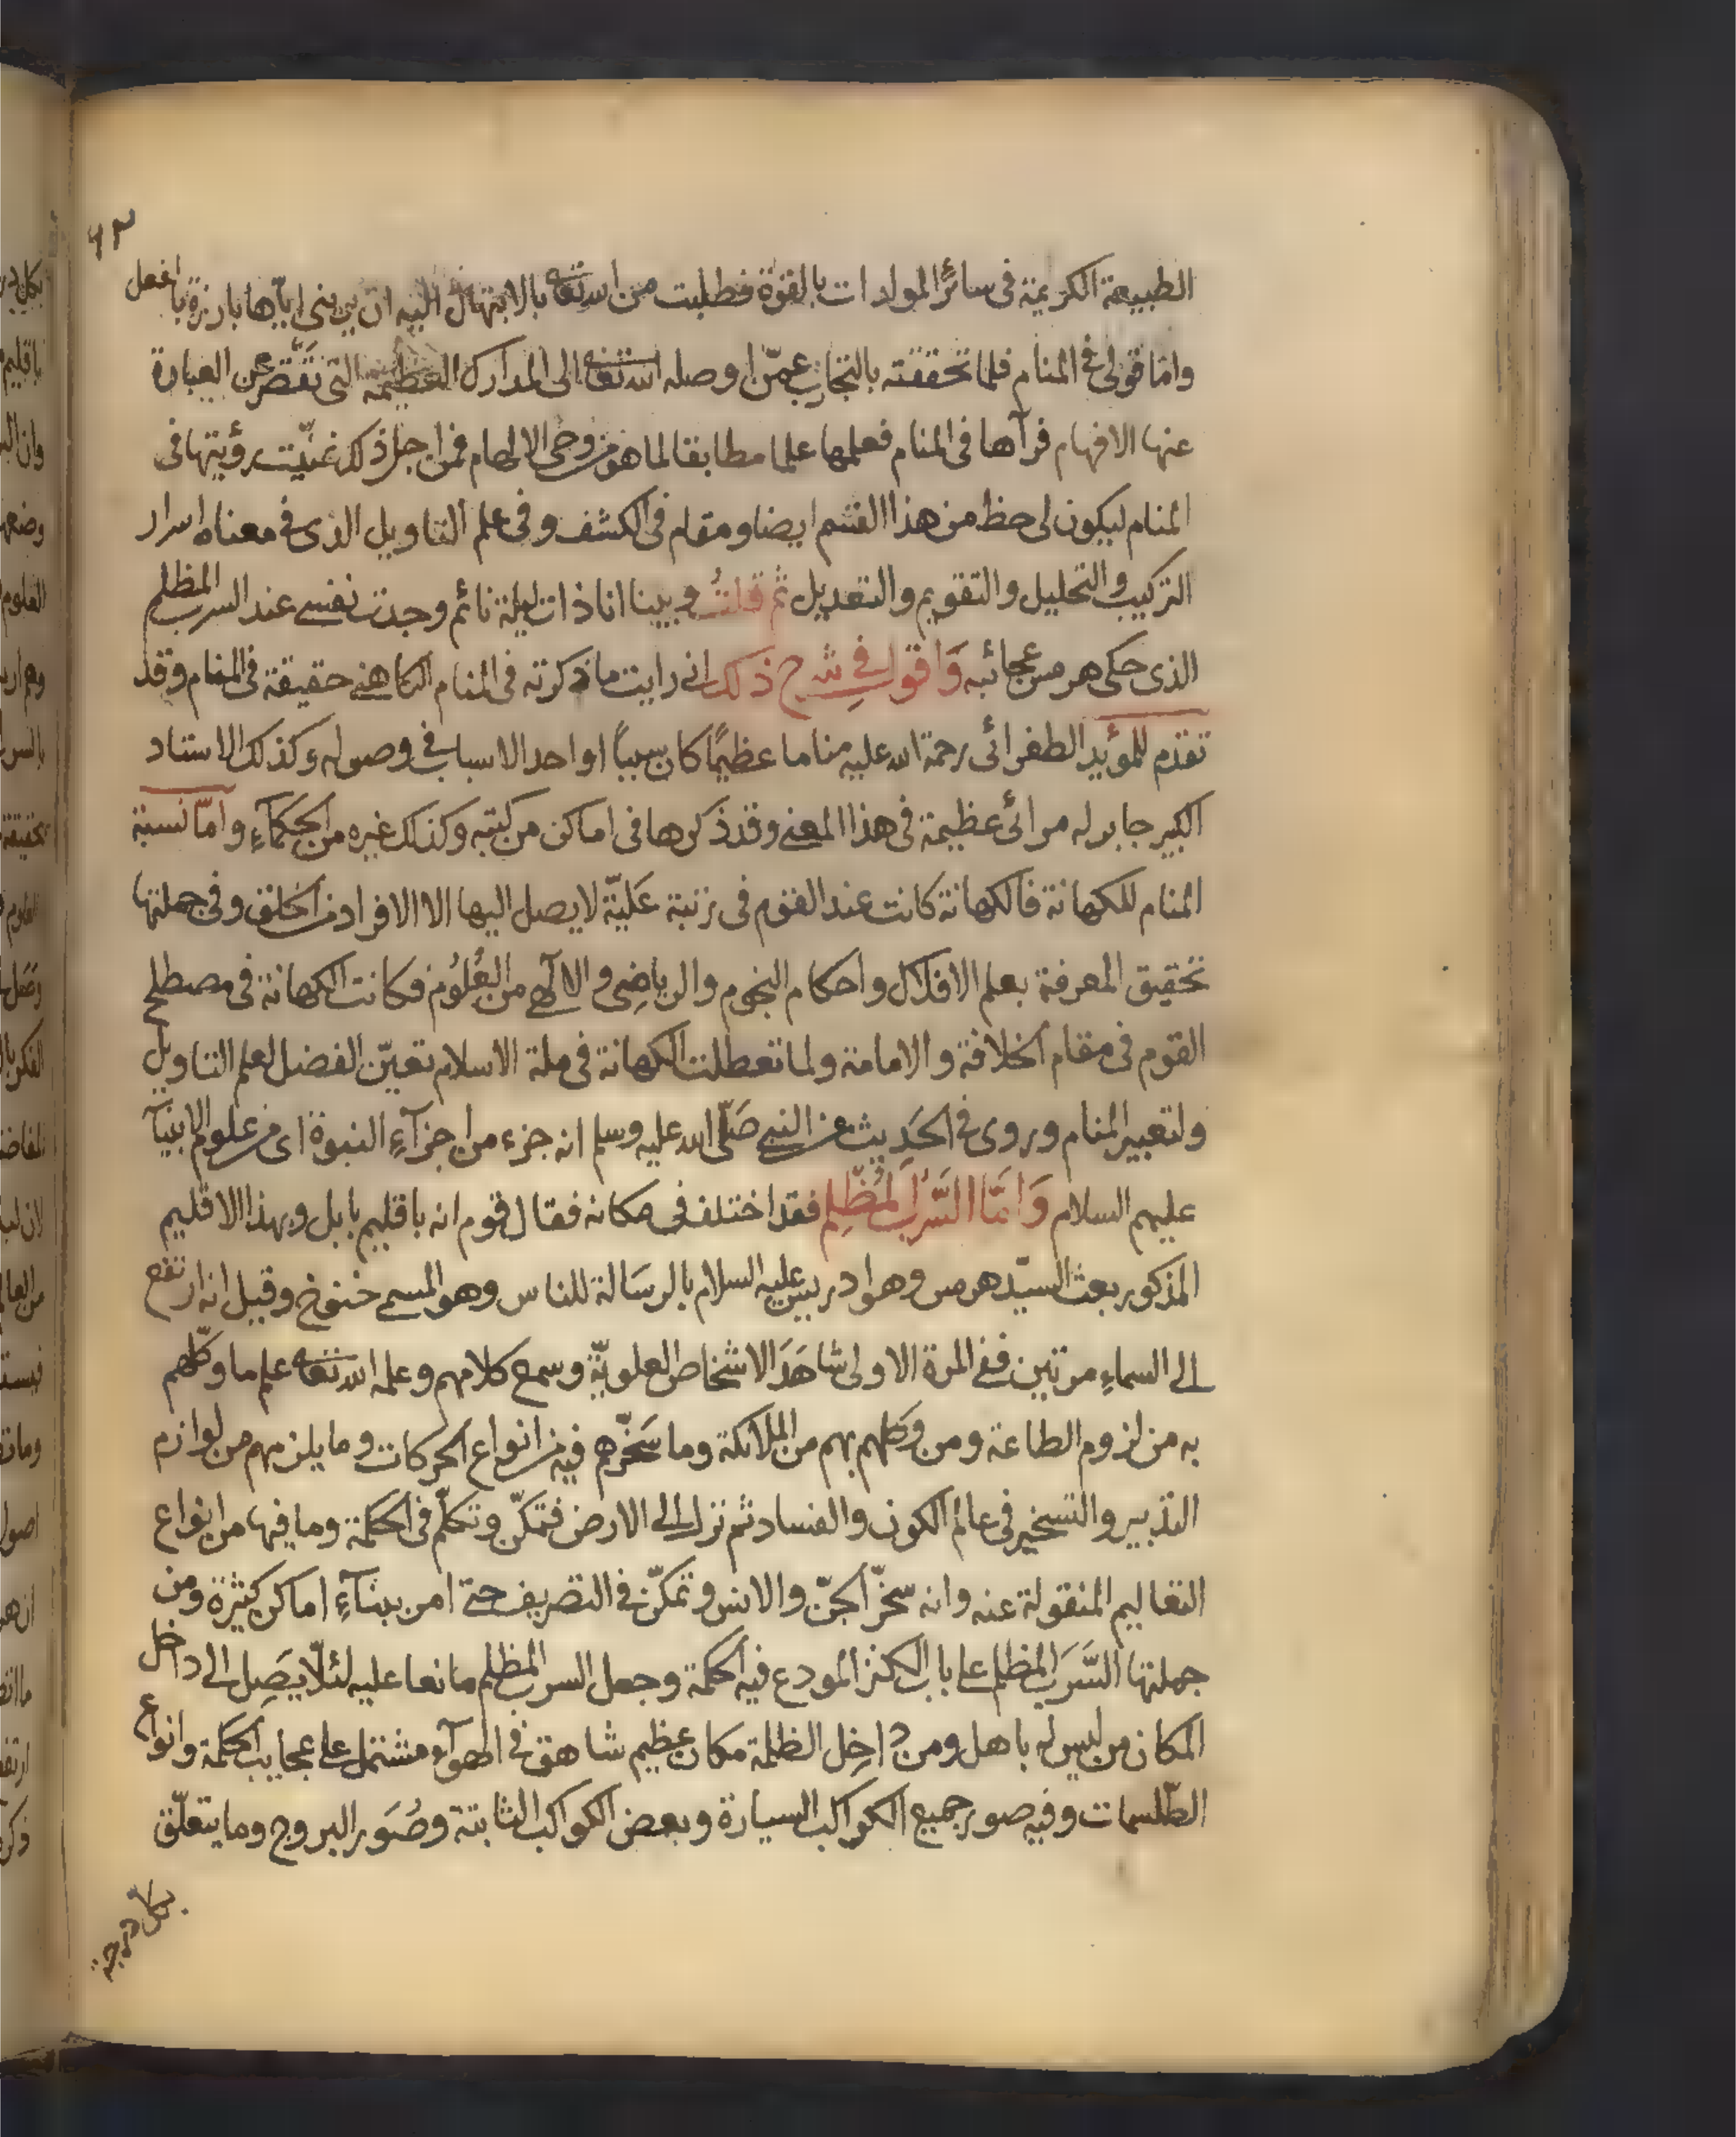 ٩٣
الطبيعة الكريمة فى سائر المولدات بالقوة فطلبت من الله تعا بالابتهال اليه ان يرينى اياها بارزة بالفعل
واما قولى فى المنام فلما تحققته بالتجارب عمّن اوصله الله تعا الى المدارك العظيمة التى تقصر عن العبارة
عنها الافهام فرآها فى المنام فعلمها علما مطابقا لما هو من وحى الالهام فمن اجل ذلك تمنيّت رؤيتها فى
المنام ليكون لى حظ من هذا القسم ايضا ومقام فى الكشف وفى علم التاويل الذى فى معناه اسرار
التركيب والتحليل والتقويم والتعديل ثم قلتُ وبينا انا ذات ليلة نائم وجدت نفسى عند السرب المظلم
الذى حكى هرمس عجائبه وَاقول فى شرح ذلك انى رايت ما ذكرته فى المنام الكاهنى حقيقة فى المنام وقد
تقدم للمؤيد الطغرائى رحمة الله عليه مناما عظيمًا كان سببًا او احد الاسباب فى وصوله وكذلك الاستاد
الكبير جابر له مرائى عظيمة فى هذا المعنى وقد ذكرها فى اماكن من كتبه وكذلك غيره من الحكمآءِ وامّا نسبة
المنام للكهانة فالكهانة كانت عند القوم فى رتبة عَليّة لا يصل اليها الا الافراد من الخلق وفى جملتها
تحقيق المعرفة بعلم الافلاك واحكام النجوم والرياضِى والآلهى من العُلُوم فكانت الكهانة فى مصطلح
القوم فى مقام الخلافة والامامة ولما تعطلت الكهانة فى ملة الاسلام تعيّن الفضل لعلم التاويل
ولتعبير المنام وروى فى الحَديث عن النبى صَلّى الله عليه وسلم انه جزء من اجزآءِ النبوة اى من علوم الانبيآ
عليهم السلام وَامّا السَّرَبُ المُظلِم فقد اختلف فى مكانه فقال قوم انه باقليم بابل وبهذا الاقليم
المذكور بعث السيّد هرمس وهو ادريس عليه السلام بالرسَالة للناس وهو المسمى خنوخ وقيل انه ارتفع
الى السماءِ مرتين ففى المرة الاولى شاهَدَ الاشخاص العلويّة وسمع كلامهم وعلمه الله تعا علم ما وكّلهم
به من لزوم الطاعة ومن وكلهم بهم من الملائكة وما سَخّرهم فيه من انواع الحركات وما يلزمهم من لوازم
التدبير والتسخير فى عالم الكون والفساد ثم نزل الى الارض فتمكّن وتكلّم فى الحكمة وما فيها من انواع
التعاليم المنقولة عنه وانه سخّر الجنّ والانس وتمكّن فى التصريف حتى امن ببنآءِ اماكن كثيرة ومن
جملتها السَّرَب المظلم على باب الكنز المودع فيه الحكمة وجعل السرب المظلم مانعا عليه لئلّا يَصِل الى داخل
المكان من ليس له باهل ومن داخِل الظلمة مكان عظيم شاهق فى الهوآءِ مشتمل على عجايب الحكمة وانواع
الطّلسمات وفيه صور جميع الكواكب السيارة وبعض الكواكب الثابتة وصُوَر البروج وما يتعلّق
بكل درجة